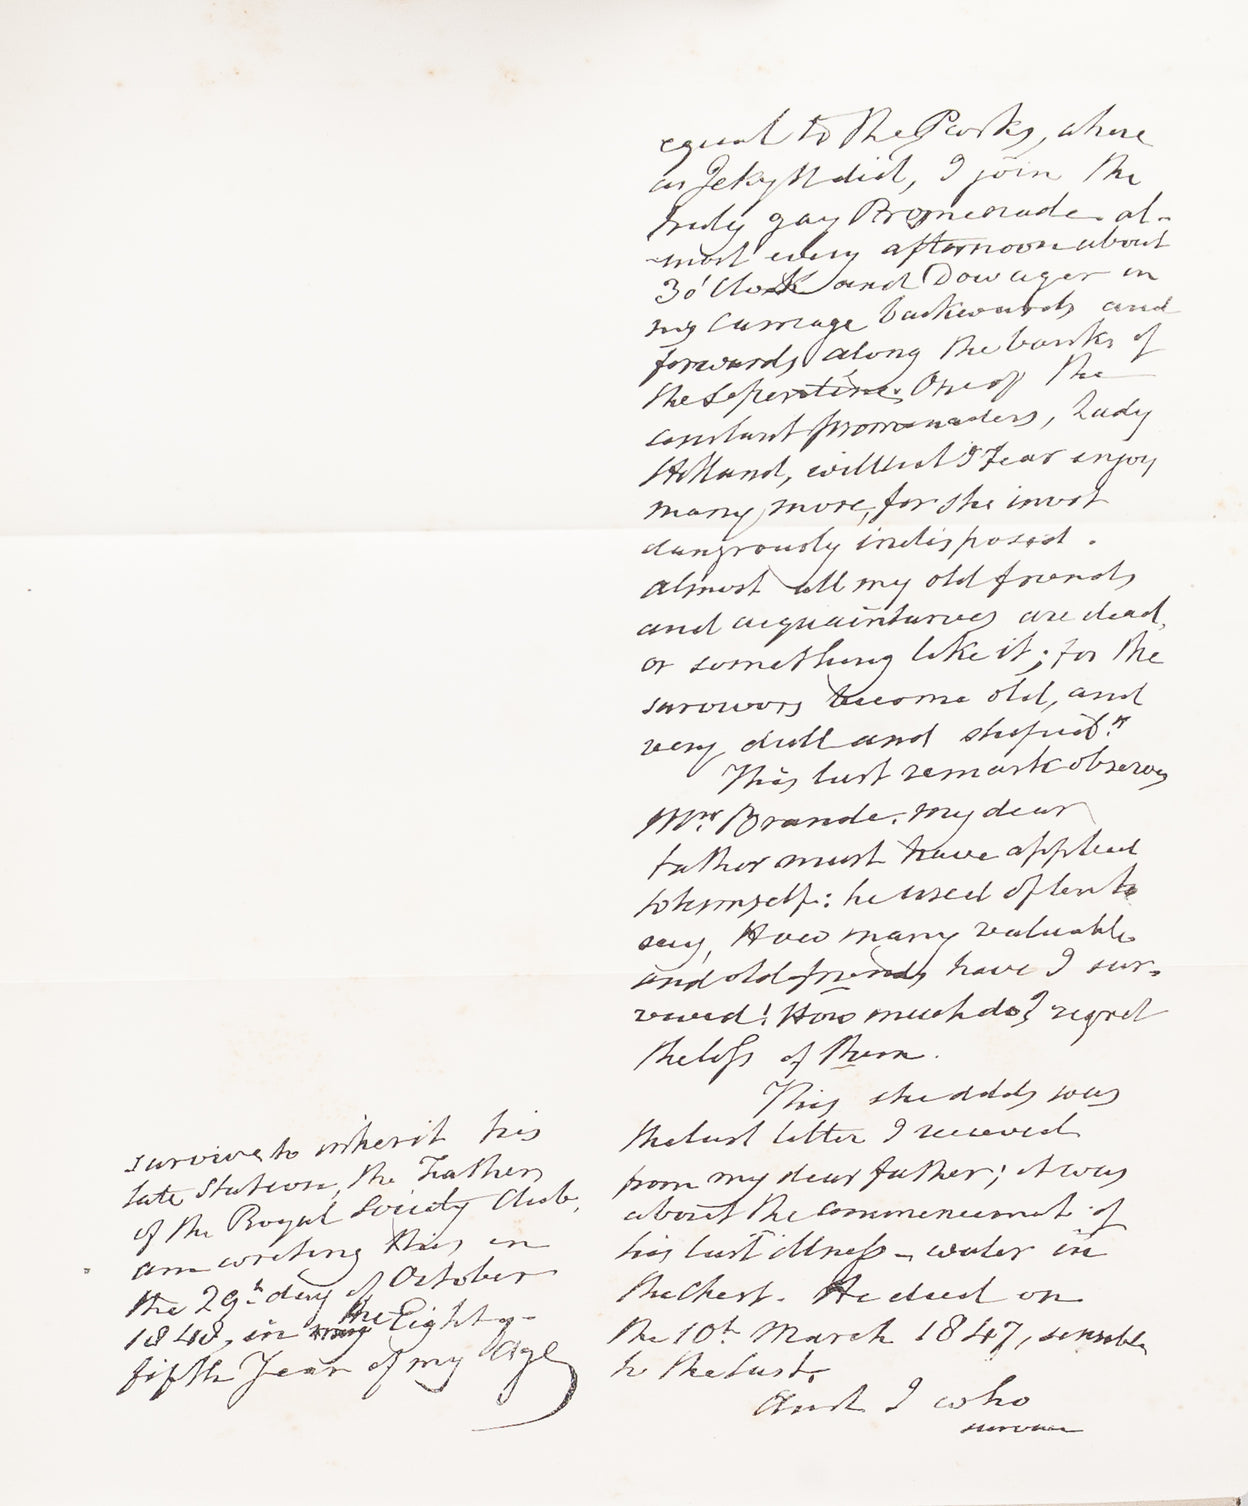 equal to the Parks, where
as Jekyll did, I join the
truly gay Promenade al-
-most every afternoon about
3 o'Clock and Dowager in
my carriage backwards and
forwards along the banks of
the Sepentine. One of the
constant promenaders, Lady
Holland, will not I fear enjoy
many more, for she is most
dangrously indisposed.
almost all my old friends
and acquaintances are dead,
or something like it; for the
survivors become old, and
very dull and stupid."
This last remark observes
Mrs. Brande. my dear
father must have applied
to himself: he used often to
say, How many valuable
and old friends have I sur-
vived! How much do I regret
the loss of them.
This she adds was
the last letter I received
from my dear father; it was
about the commencement of
his last illness - water in
the Chest. He died on
the 10th March 1847, sensible
to the last.
And I who
survive
survive to inherit his
late Station, the Father
of the Royal Society Club,
am writing this in
the 29th day of October
1848, in my the Eighty-
fifth Year of my Age